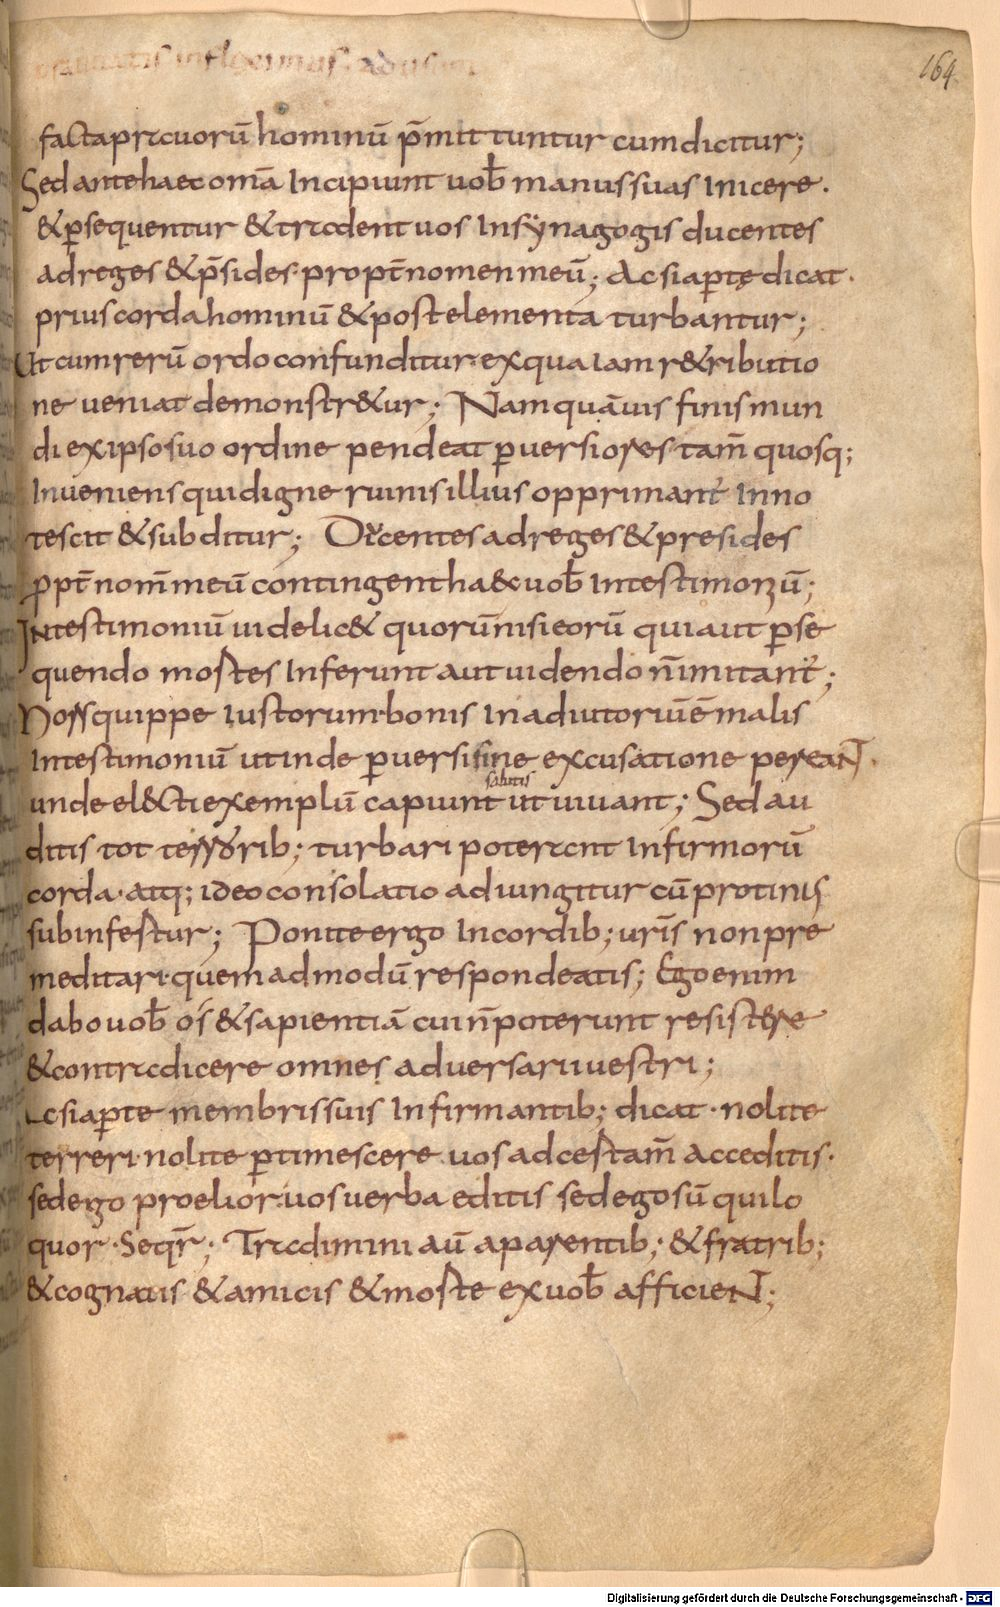 164
facta prauorū hominū p̄mittuntur cum dicitur;
Sed ante haec omā Incipiunt uob̄ manus suas Inicere.
& ꝑsequentur & tradent uos In synagogis ducentes
ad reges & p̄sides. propt̄ nomen meū; Ac si aꝑtę dicat.
prius corda hominū & post elementa turbantur;
Ut cum rerū ordo confunditur. ex qua Iam r&ributio
ne ueniat demonstr&ur; Nam quāuis finis mun
di ex ipso suo ordine pendeat ꝑuersiores tam̄ quosq;
Inueniens qui digne ruinis illius opprimant̄ Inno
tescit & subditur; Dicentes ad reges & presides
ꝓpt̄ nom̄ meū contingent ha& uob̄ In testimoniū;
In testimoniū uidelic& quorū nisi eorū qui aut ꝑse
quendo mostes Inferunt aut uidendo n̄ imitant̄;
Moss quippe Iustorum bonis In adiutoriū ē malis
In testimoniū ut inde ꝑuersi sine excusatione pereaNT.
salutis
unde el&ti exemplū capiunt ut uiuant; Sed au
ditis tot terrorib; turbari poterant Infirmorū
corda. atq; ideo consolatio adiungitur cū protinis
subinfestur; Ponite ergo In cordib; uris̄ non pre
meditari. quemadmodū respondeatis; Ego enim
dabo uob̄ os & sapientiā cui n̄ poterunt resistere
& contradicere omnes aduersarii uestri;
Ac si aꝑte membris suis Infirmantib; dicat. nolite
terreri. nolite ꝑtimescere. uos ad cestam̄ acceditis.
sed ego proelior. uos uerba editis sed ego sū qui lo
quor. Seqr̄; Tradimini aū a parentib; & fratrib;
& cognatis & amicis & moste ex uob̄ afficieNT;
Digitalisierung gefördert durch die Deutsche Forschungsgemeinschaft - DFG